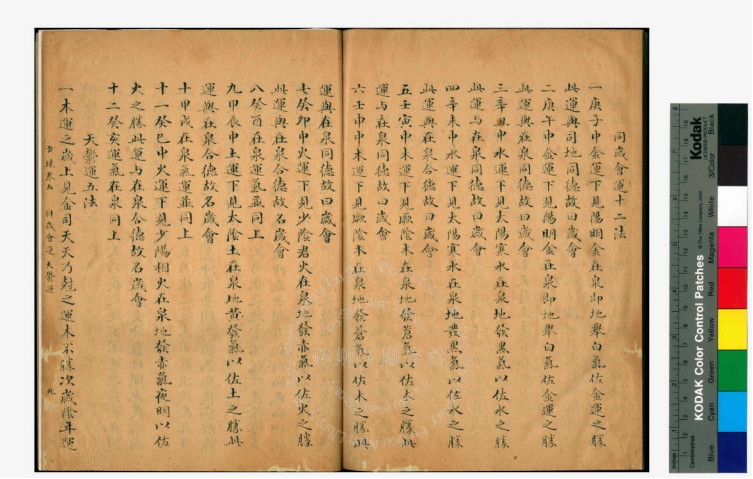 同歲會運十二法
一庚子中金運下見陽明金在泉即地舉白氣佐金運之勝
此運與司地同德故曰歲會
二庚午中金運下見陽明金在泉即地舉白氣佐金運之勝
此運與在泉合德故曰歲會
三辛丑中水運下見太陽寒水在泉地發黑氣以佐水之勝
此運與在泉同德故曰歲會
四辛未中水運下見太陽寒水在泉地發黑氣以佐水之勝
此運與在泉合德故曰歲會
五壬寅中木運下見厥陰木在泉地發蒼氣以佐木之勝此
運与在泉同德故曰歲會
六壬申中木運下見厥陰木在泉地發蒼氣以佐木之勝此
運與在泉同德故曰歲會
七癸卯中火運下見少陰君火在泉地發赤氣以佐火之勝
此運與在泉合德故名歲會
八癸酉在泉運氣並同上
九甲辰中土運下見太陰土在泉地黄發氣以佐土之勝此
運與在泉合德故名歲會
十甲戌在泉氣運並同上
十一癸巳中火運下見少陽相火在泉地發赤氣夜明以佐
火之勝此運与在泉合德故名歲會
十二癸亥運氣在泉同上
天繫運五法
一木運之歲上見金司天天乃尅之運木不勝次歲陰年運
卷五
同歲會運 天繫運
九
Kodak
KODAK Color Control Patches
Blue
Cyan
Green
Yellow
Red
Magenta
White
3/Color
Black
Inches
Centimetres